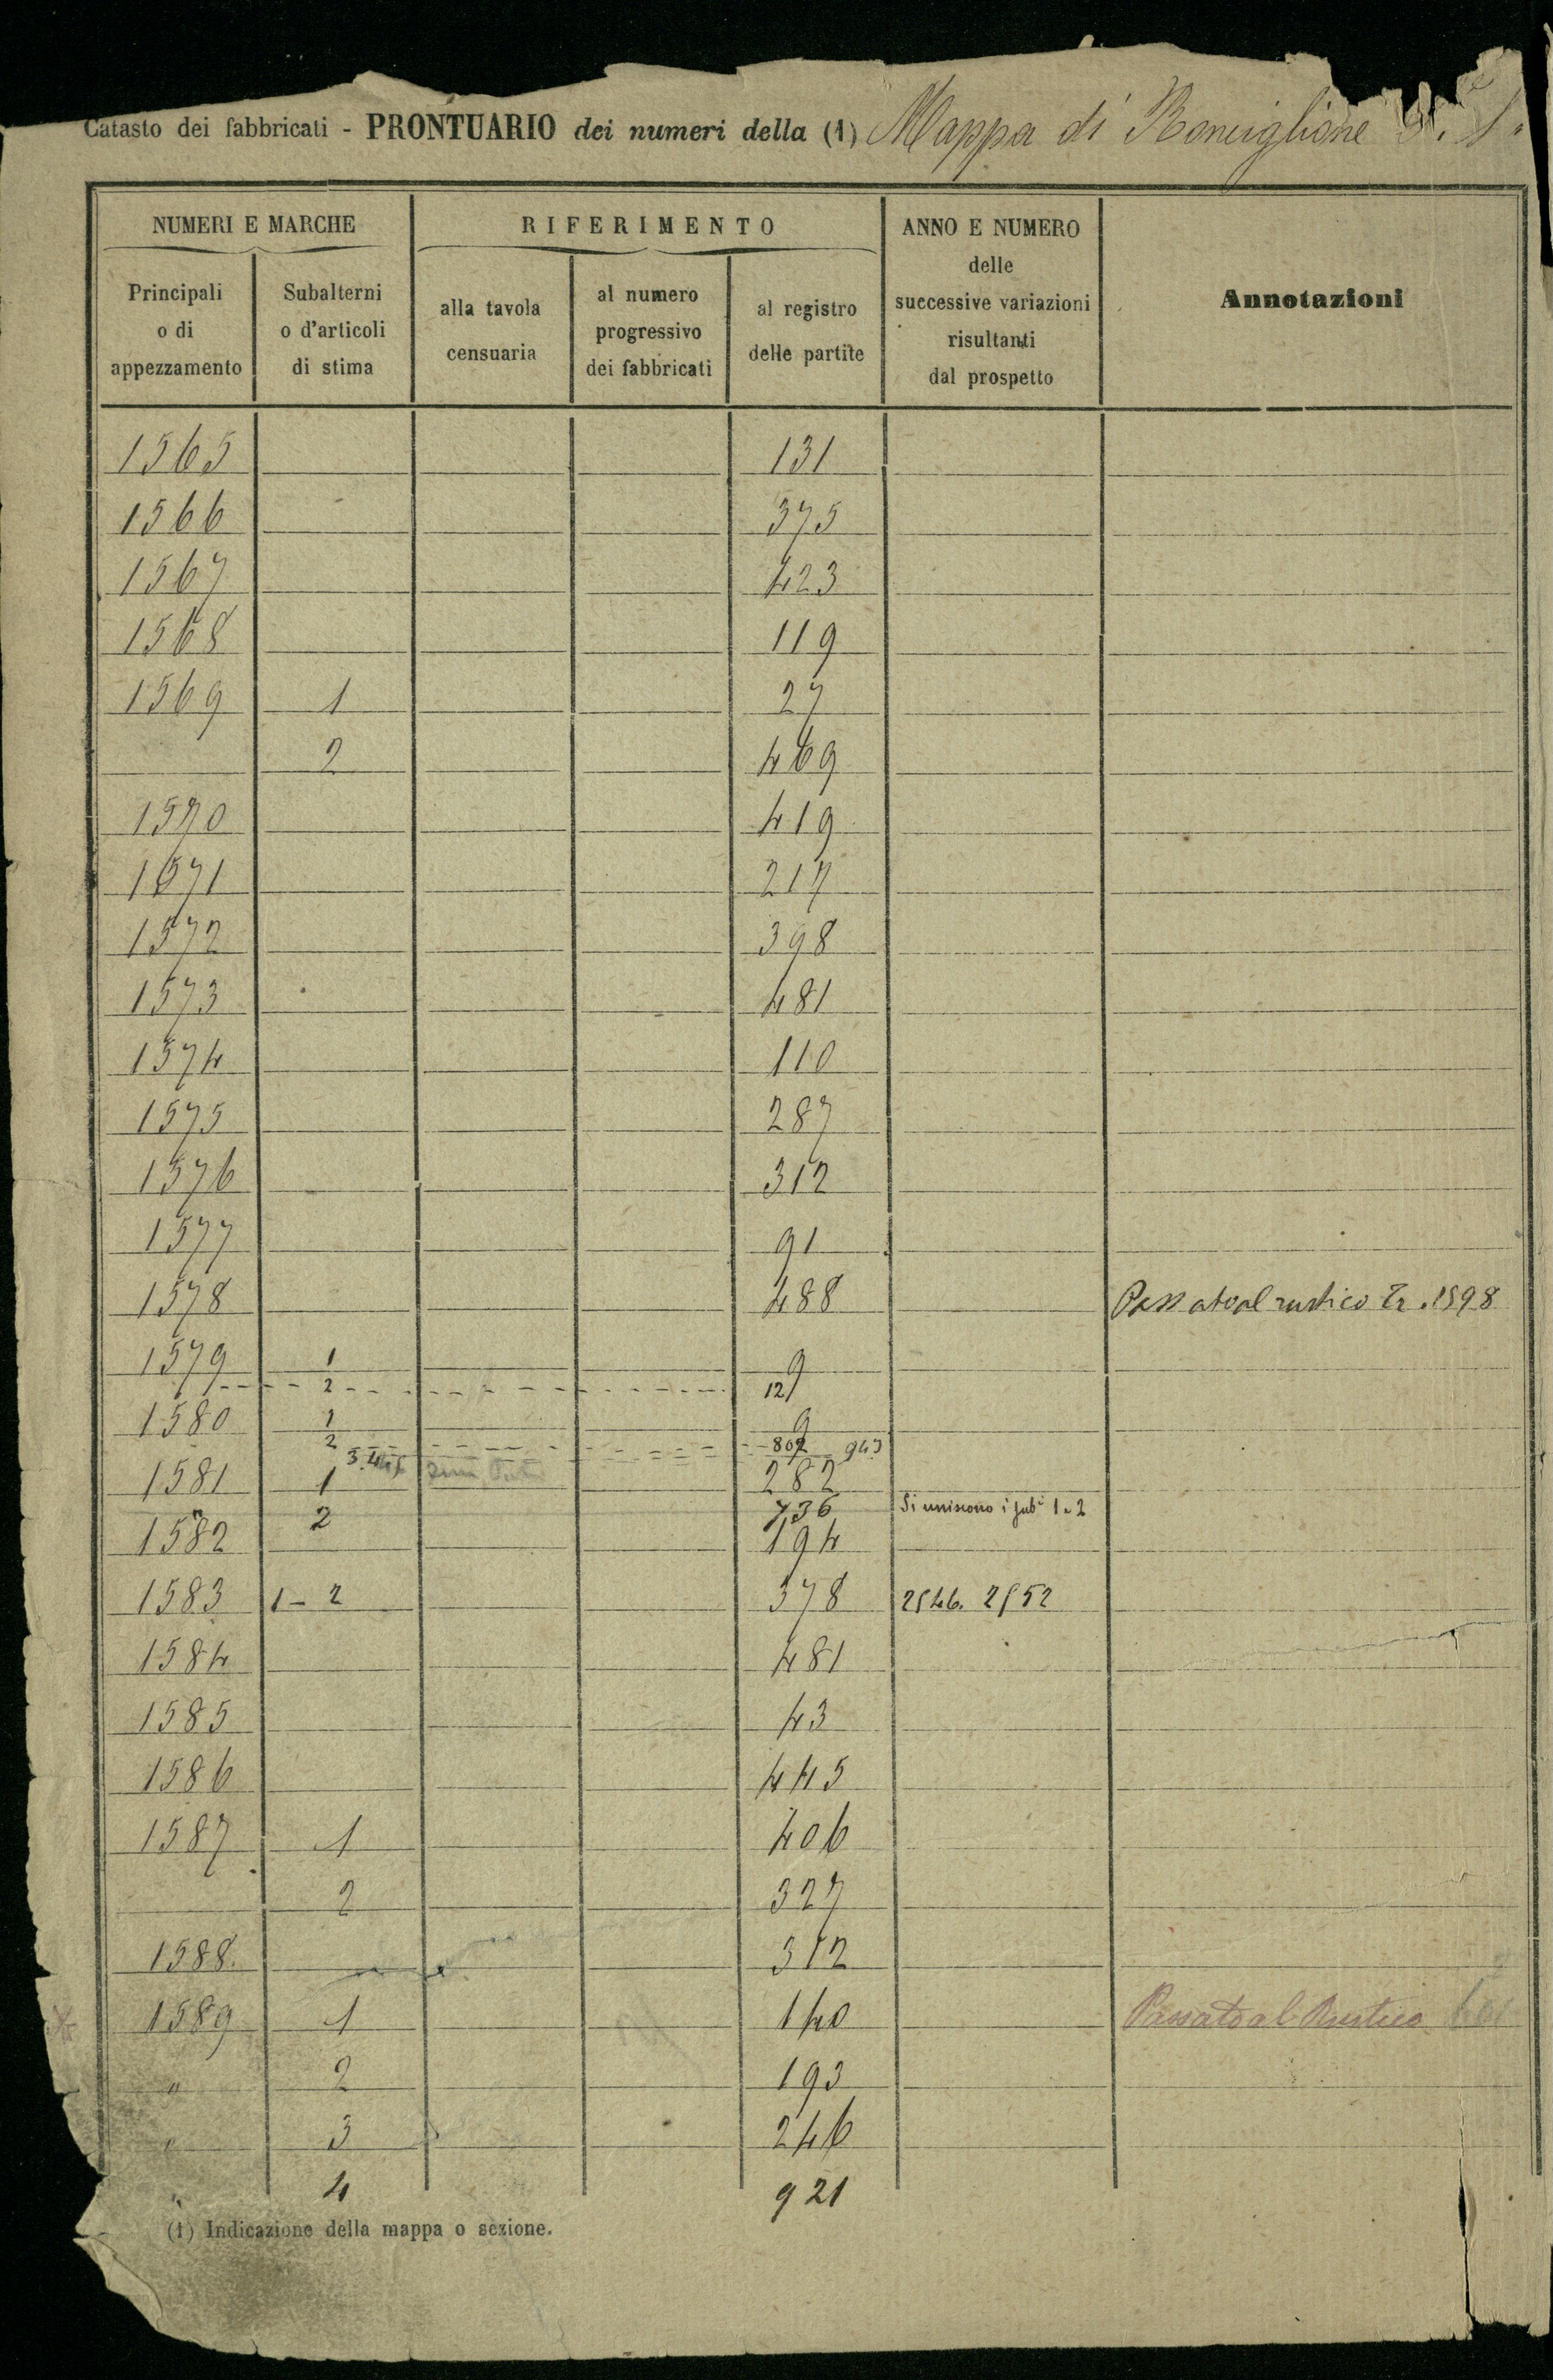 Catasto dei fabbricati - PRONTUARIO dei numeri della (1) Mappa di Ronciglione
NUMERI E MARCHE
RIFERIMENTO
ANNO E NUMERO
delle
successive variazioni
risultanti
dal prospetto
Annotazioni
Principali
o di
appezzamento
Subalterni
o d'articoli
di stima
alla tavola
censuaria
al numero
progressivo
dei fabbricati
al registro
delle partite
1565 131
1566 375
1567 423
1568 119
1569 1 27
2 469
1570 419
1571 217
1572 398
1573 481
1574 110
1575 287
1576 312
1577 91
1578 488 Passato al rustico Tr. 1898
1579 1 9
2 121
1580 1 9
2 943
1581 1 282
" 2 736 Si uniscono i sub i 1 e 2
1582 194
1583 1-2 378 2546. 2552
1584 481
1585 43
1586 445
1587 1 406
2 327
1588. 312
1589 1 140 Passato al Rustico
" 2 193
" 3 246
" 4 921
(1) Indicazione della mappa o sezione.